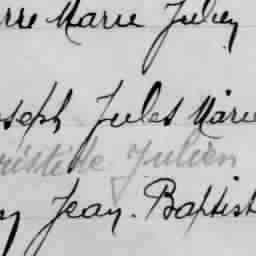 erre Marie Juley
oseph Jules Marie
ristide Julien
y Jean-Baptist